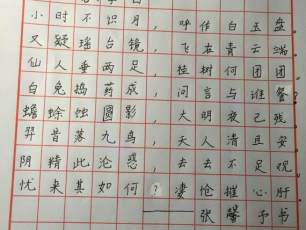 小时不识月，呼作白玉盘
又疑瑶台镜，飞在青云端
仙人垂两足，桂树何团团
白兔捣药成，问言与谁餐？
蟾蜍蚀圆影，大明夜已残
羿昔落九乌，天人清且安
阴精此沦惑，去去不足观
忧来其如何？凄怆摧心肝
——张馨予书